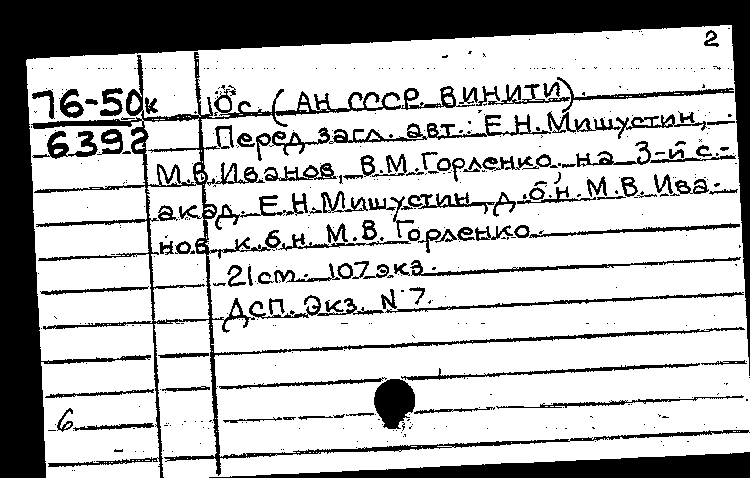 2
76-50к
6392
10с. (АН СССР. ВИНИТИ).
Перед загл. авт.: Е.Н.Мишустин,
М.В.Иванов, В.М.Горленко, на 3-й с.-
акад. Е.Н.Мишустин, д.б.н. М.В. Ива-
нов, к.б.н. М.В. Горленко.
21см. 107экз.
ДСП. Экз. N 7.
6